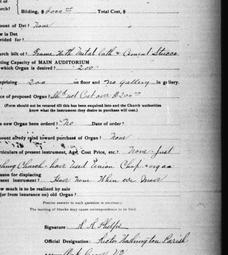 Bilding, $ 4000 00 Total Cost, $
of Debt? None
w is Debt
vided for?
hurch bilt of? Frame With Metal Lath & Cement Stucco
ting Capacity of MAIN AUDITORIUM
which Organ is desired? 200
mprising 200 on floor and no Gallery in gallery.
ice of proposed Organ? Shld not Cost over $2000 00
(Form should not be returned till this has been enquired into and the Church authorities
know what the instrument they desire to purchase will cost.)
s new Organ been ordered? No Date of order?
mount already raised toward purchase of Organ? None
rticulars of present instrument, Age, Cost Price, etc. None - just
Church - have used Union Chap organ
eason for displacing
resent instrument? Have none When we move
w much is to be realised by sale
or from insurance) on old Organ?
Precise answer to each question is necessary.
The leaving of blanks may cause correspondence to be lost.
Signature
Official Designation: Rector Parish